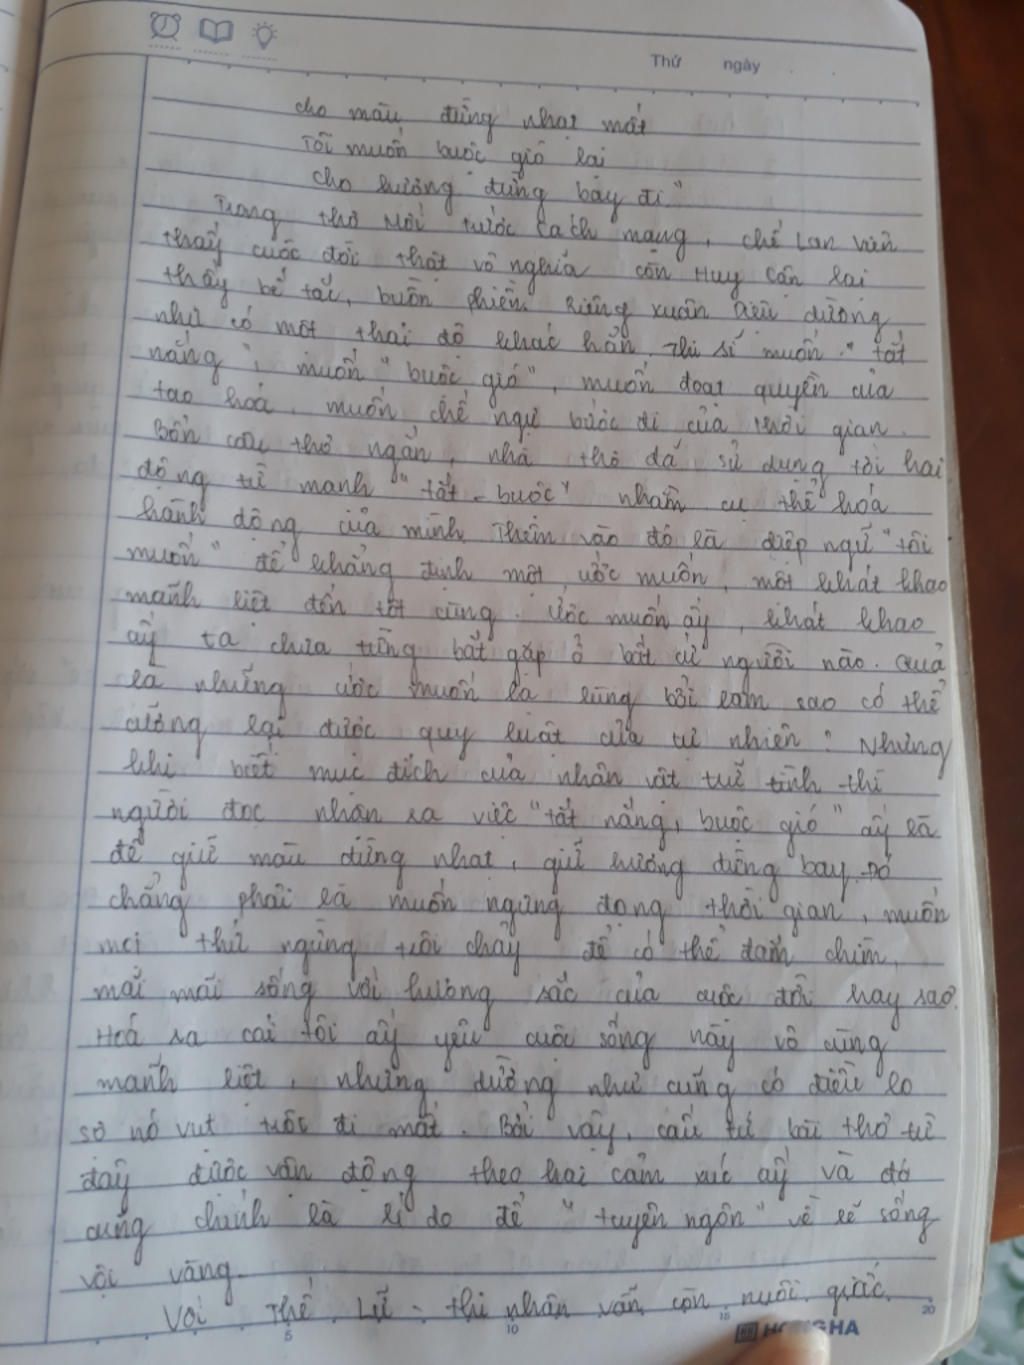 Thứ ngày
cho màu đừng nhạt mất
Tôi muốn buộc gió lại
Cho hương đừng bay đi"
Trong thơ Mới trước Cách mạng, chế Lan Viên
thấy cuộc đời thật vô nghĩa còn Huy Cận lại
thấy bế tắc, buồn phiền. Riêng xuân Diệu dường
như có một thái độ khác hẳn. Thi sĩ muốn "tắt
nắng", muốn "buộc gió", muốn đoạt quyền của
tạo hoá, muốn chế ngự bước đi của thời gian.
Bốn câu thơ ngắn, nhà thơ đã sử dụng tới hai
động từ mạnh "tắt - buộc" nhằm cụ thể hoá
hành động của mình. Thêm vào đó là điệp ngữ "tôi
muốn" để khẳng định một ước muốn, một khát khao
mãnh liệt đến tột cùng. Ước muốn ấy, khát khao
ấy ta chưa từng bắt gặp ở bất cứ người nào. Quả
là những ước muốn lạ lùng bởi làm sao có thể
cưỡng lại được quy luật của tự nhiên? Nhưng
khi biết mục đích của nhân vật trữ tình thì
người đọc nhận ra việc "tắt nắng, buộc gió" ấy là
để giữ màu đừng nhạt, giữ hương đừng bay. Đó
chẳng phải là muốn ngưng đọng thời gian, muốn
mọi thứ ngừng trôi chảy để có thể đắm chìm,
mãi mãi sống với hương sắc của cuộc đời hay sao.
Hoá ra cái tôi ấy yêu cuộc sống này vô cùng
mãnh liệt, nhưng dường như cũng có điều lo
sợ nó vụt trốc đi mất. Bởi vậy, cấu tứ bài thơ từ
đây được vận động theo hai cảm xúc ấy và đó
cũng chính là lí do để "tuyên ngôn" về lẽ sống
vội vàng.
Với Thế Lữ - thi nhân vẫn còn nuôi giấc
5 10 15 20